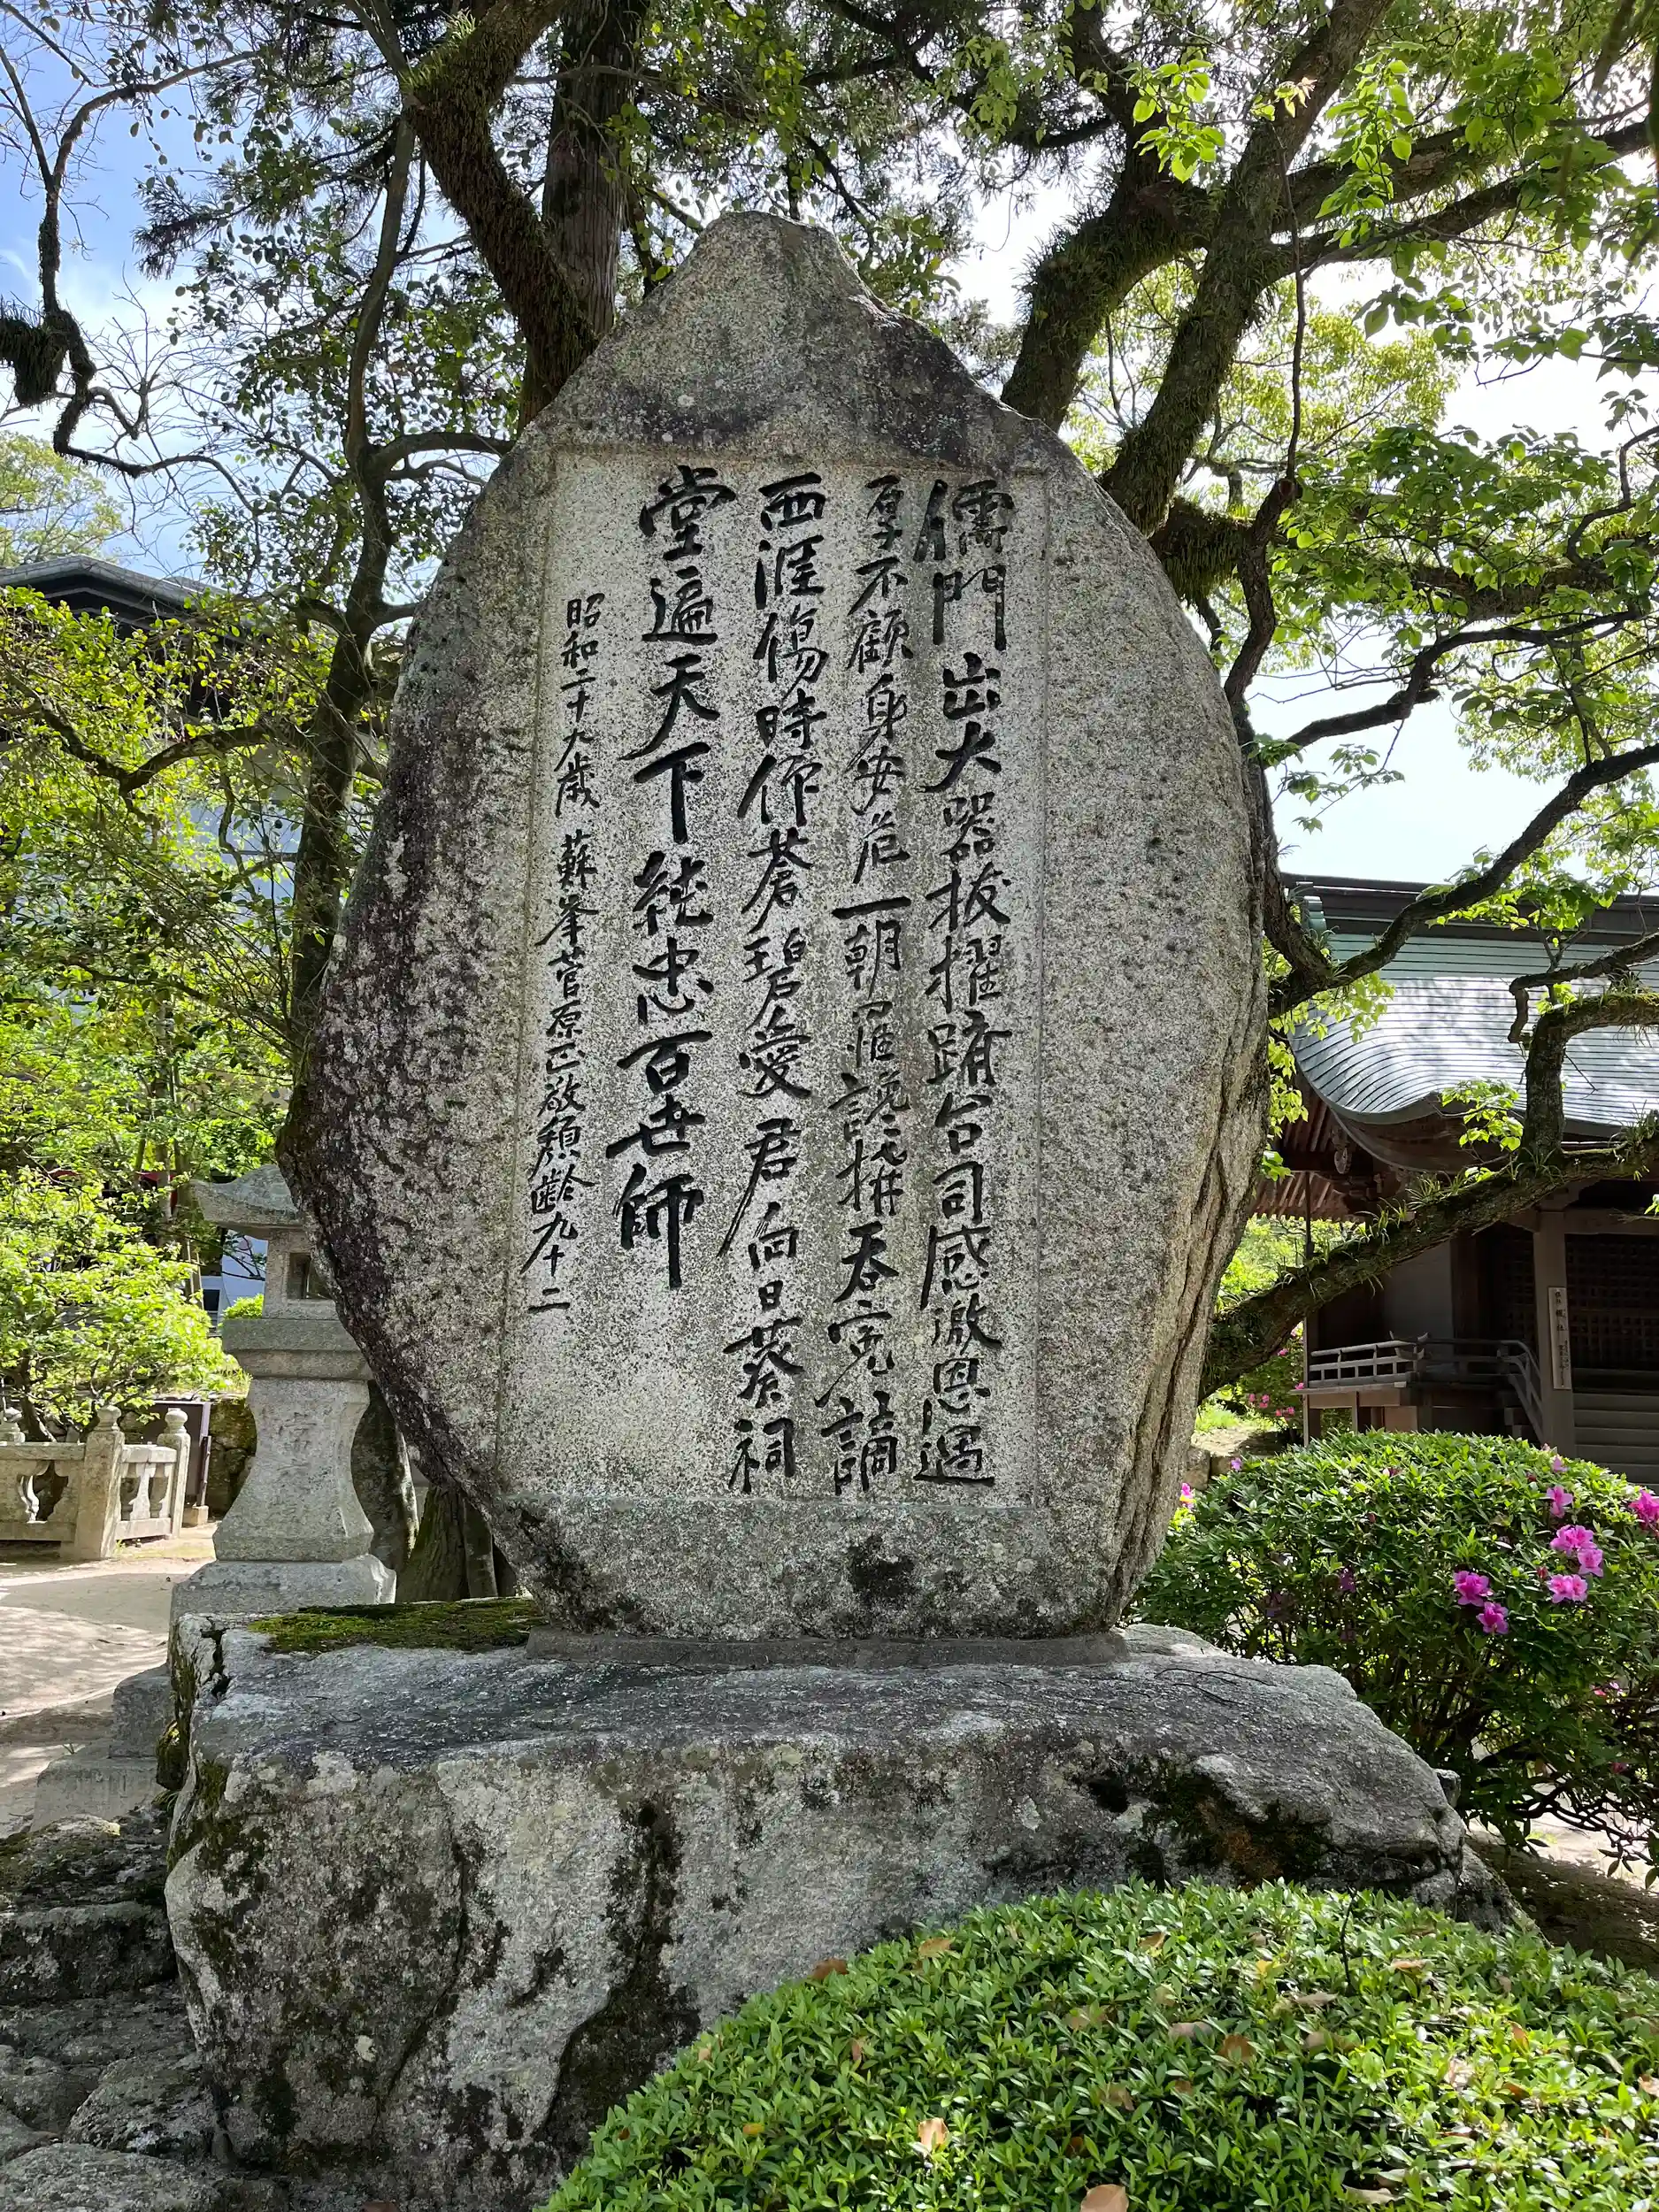 儒門出大器拔擢躋台司感激恩遇
厚不顧身安危一朝罹讒構吞寃謫
西涯傷時作蒼碧愛君向日葵祠
堂遍天下純忠百世師
昭和二十九歳 蘇峯菅原正敬頽齢九十二